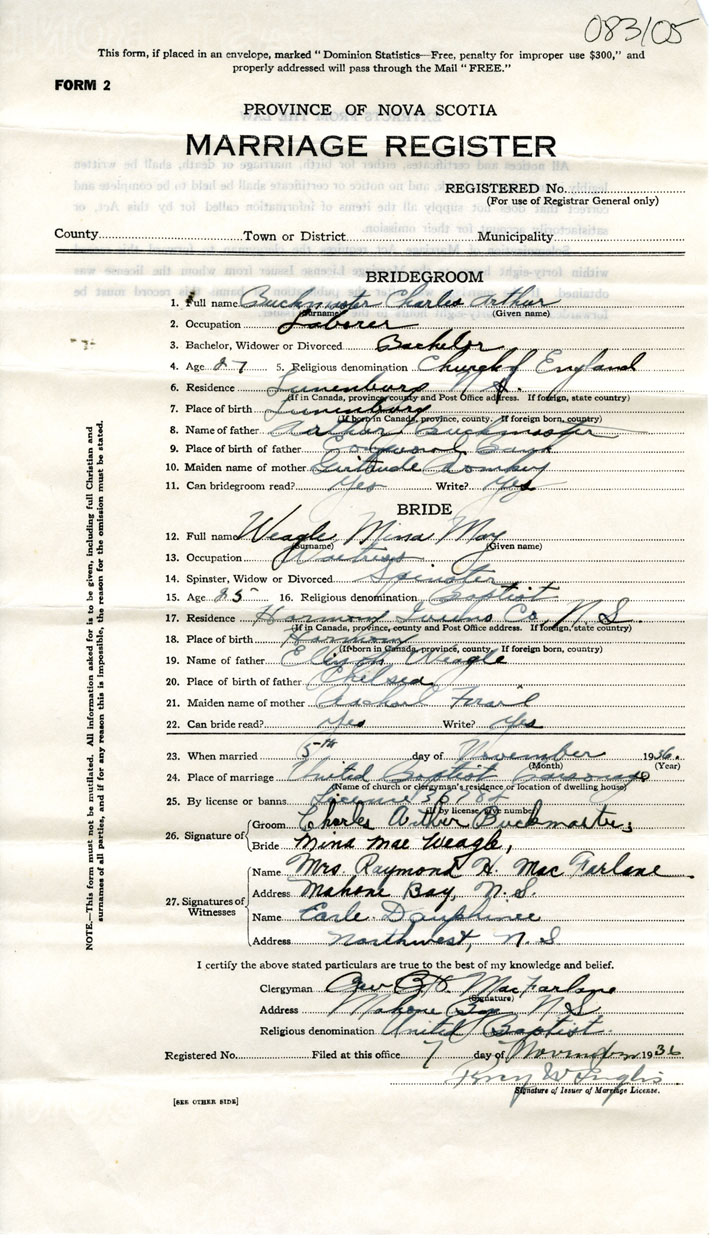 083105
This form, if placed in an envelope, marked "Dominion Statistics—Free, penalty for improper use $300," and
properly addressed will pass through the Mail "FREE."
FORM 2
PROVINCE OF NOVA SCOTIA
MARRIAGE REGISTER
REGISTERED No.
(For use of Registrar General only)
County Town or District Municipality
BRIDEGROOM
1. Full name Buckmaster Charles Arthur
(Surname) (Given name)
2. Occupation Laborer
3. Bachelor, Widower or Divorced Bachelor
4. Age 27 5. Religious denomination Church of England
6. Residence Lunenburg N.S.
(If in Canada, province, county and Post Office address. If foreign, state country)
7. Place of birth Lunenburg
(If born in Canada, province, county. If foreign born, country)
8. Name of father Arthur Buckmaster
9. Place of father
10. Maiden name of mother Gertrude
11. Can bridegroom read? Yes Write? Yes
BRIDE
12. Full name Weagle Mina May
(Surname) (Given name)
13. Occupation Waitress
14. Spinster, Widow or Divorced Spinster
15. Age 25 16. Religious denomination Baptist
17. Residence Harmony Queens Co, N.S.
(If in Canada, province, county and Post Office address. If foreign, state country)
18. Place of birth Harmony
(If born in Canada, province, county. If foreign born, country)
19. Name of father Weagle
20. Place of birth of father Chelsea
21. Maiden name of mother
22. Can bride read? Yes Write? Yes
23. When married 5th day of November 1936.
(Month) (Year)
24. Place of marriage United Baptist Parsonage
(Name of church or clergyman's residence or location of dwelling house)
25. By license or banns License
(If by license give number)
26. Signature of Groom Charles Arthur Buckmaster
Bride Mina Mae Weagle,
27. Signatures of Witnesses
Name Mrs. Raymond H. Mac Farlane
Address Mahone Bay, N.S.
Name Earle Dauphinee
Address Northwest, N.S
I certify the above stated particulars are true to the best of my knowledge and belief.
Clergyman MacFarlane
(Signature)
Address Mahone Bay N.S
Religious denomination United Baptist
Registered No. Filed at this office 7 day of November 1936
Signature of Issuer of Marriage License.
[SEE OTHER SIDE]
NOTE.—This form must not be mutilated. All information asked for is to be given, including full Christian and
surnames of all parties, and if for any reason this is impossible, the reason for the omission must be stated.